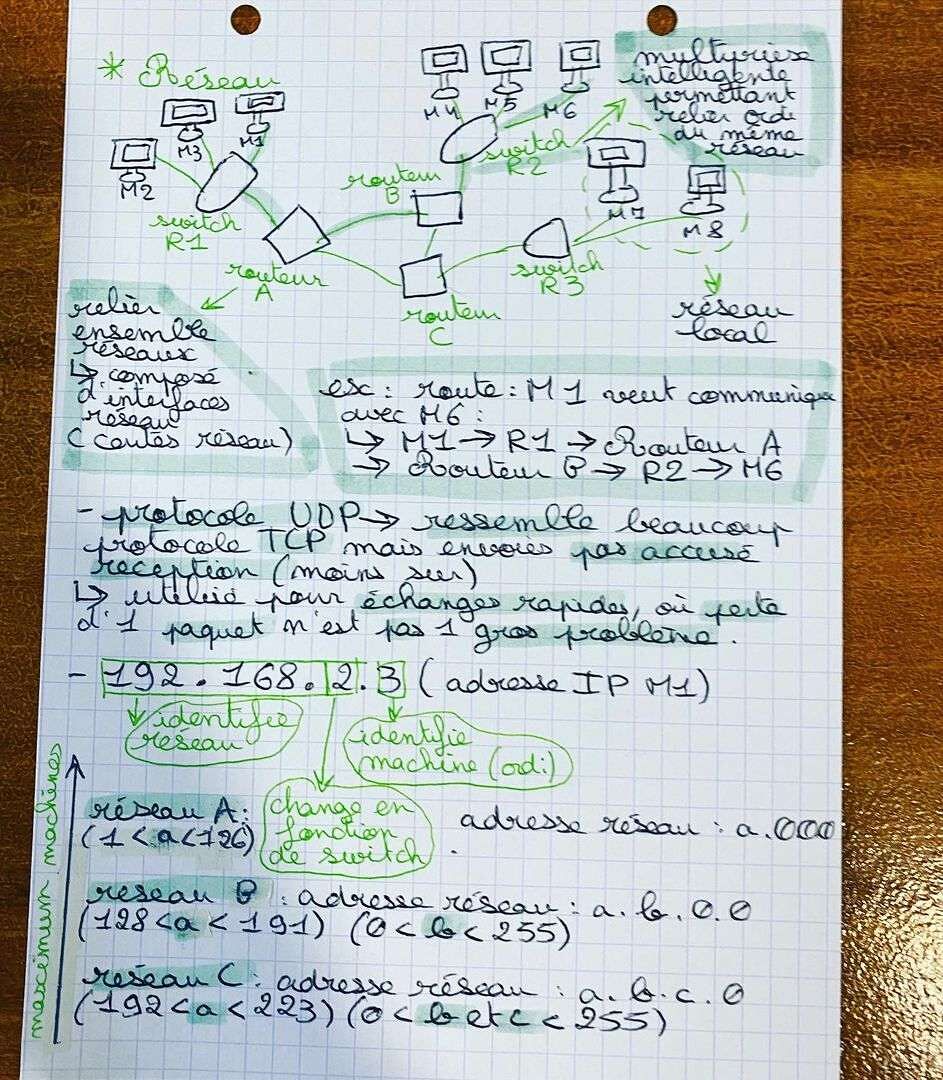 * Réseau
M4
M5
M6
multiprise
intelligente
permettant
relier ordi
du même
réseau
M3
M1
M2
switch
R1
routeur
A
routeur
B
switch
R2
M7
M8
switch
R3
routeur
C
réseau
local
relier
ensemble
réseaux
↳ composé
d'interfaces
réseau
(cartes réseau)
ex : route : M1 veut communiquer
avec M6 :
↳ M1 → R1 → Routeur A
→ Routeur B → R2 → M6
- protocole UDP → ressemble beaucoup
protocole TCP mais envoies pas accusé
réception (moins sur)
↳ utilisé pour échanges rapides, où perte
d'1 paquet n'est pas 1 gros problème.
- 192.168.2.3 (adresse IP M1)
identifie
réseau
identifie
machine (ordi)
change en
fonction
de switch
maximum machines
réseau A :
(1 < a < 126)
adresse réseau : a.000
reseau B : adresse réseau : a.b.0.0
(128 < a < 191) (0 < b < 255)
reseau C : adresse réseau : a.b.c.0
(192 < a < 223) (0 < b et c < 255)